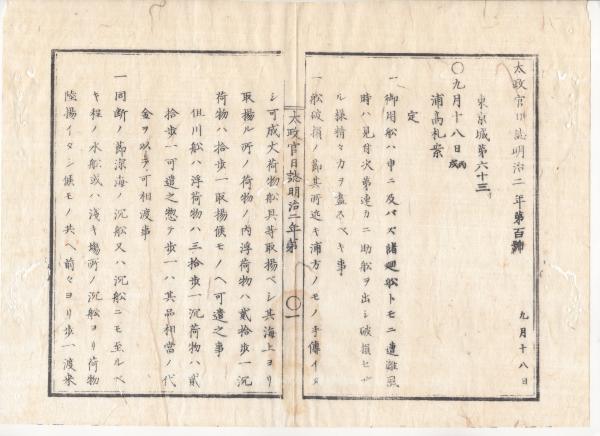 太政官日誌明治二年第百號
九月十八日
東京城第六十三
○九月十八日丙戌
浦高札案
定
一御用船ハ申ニ及バズ諸廻船トモニ遭難風
時ハ見付次第速カニ助船ヲ出シ破損セザ
ル様精々力ヲ盡スベキ事
一船破損ノ節其所近キ浦方ノモノ手傳イタ
シ可成丈荷物船具等取揚ベシ其海上ヨリ
取揚ル所ノ荷物ノ内浮荷物ハ貳拾歩一沉
荷物ハ拾歩一取揚候モノヘ可遣之事
但川船ハ浮荷物ハ三拾歩一沉荷物ハ貳
拾歩一可遣之惣テ歩一ハ其品相當ノ代
金ヲ以テ可相渡事
一同断ノ節深海ノ沉船又ハ沉船ニモ至ルベ
キ程ノ水船或ハ淺キ場所ノ沉船ヨリ荷物
陸揚イタシ候モノ共ヘ前々ヨリ歩一渡来
太政官日誌明治二年第
○一